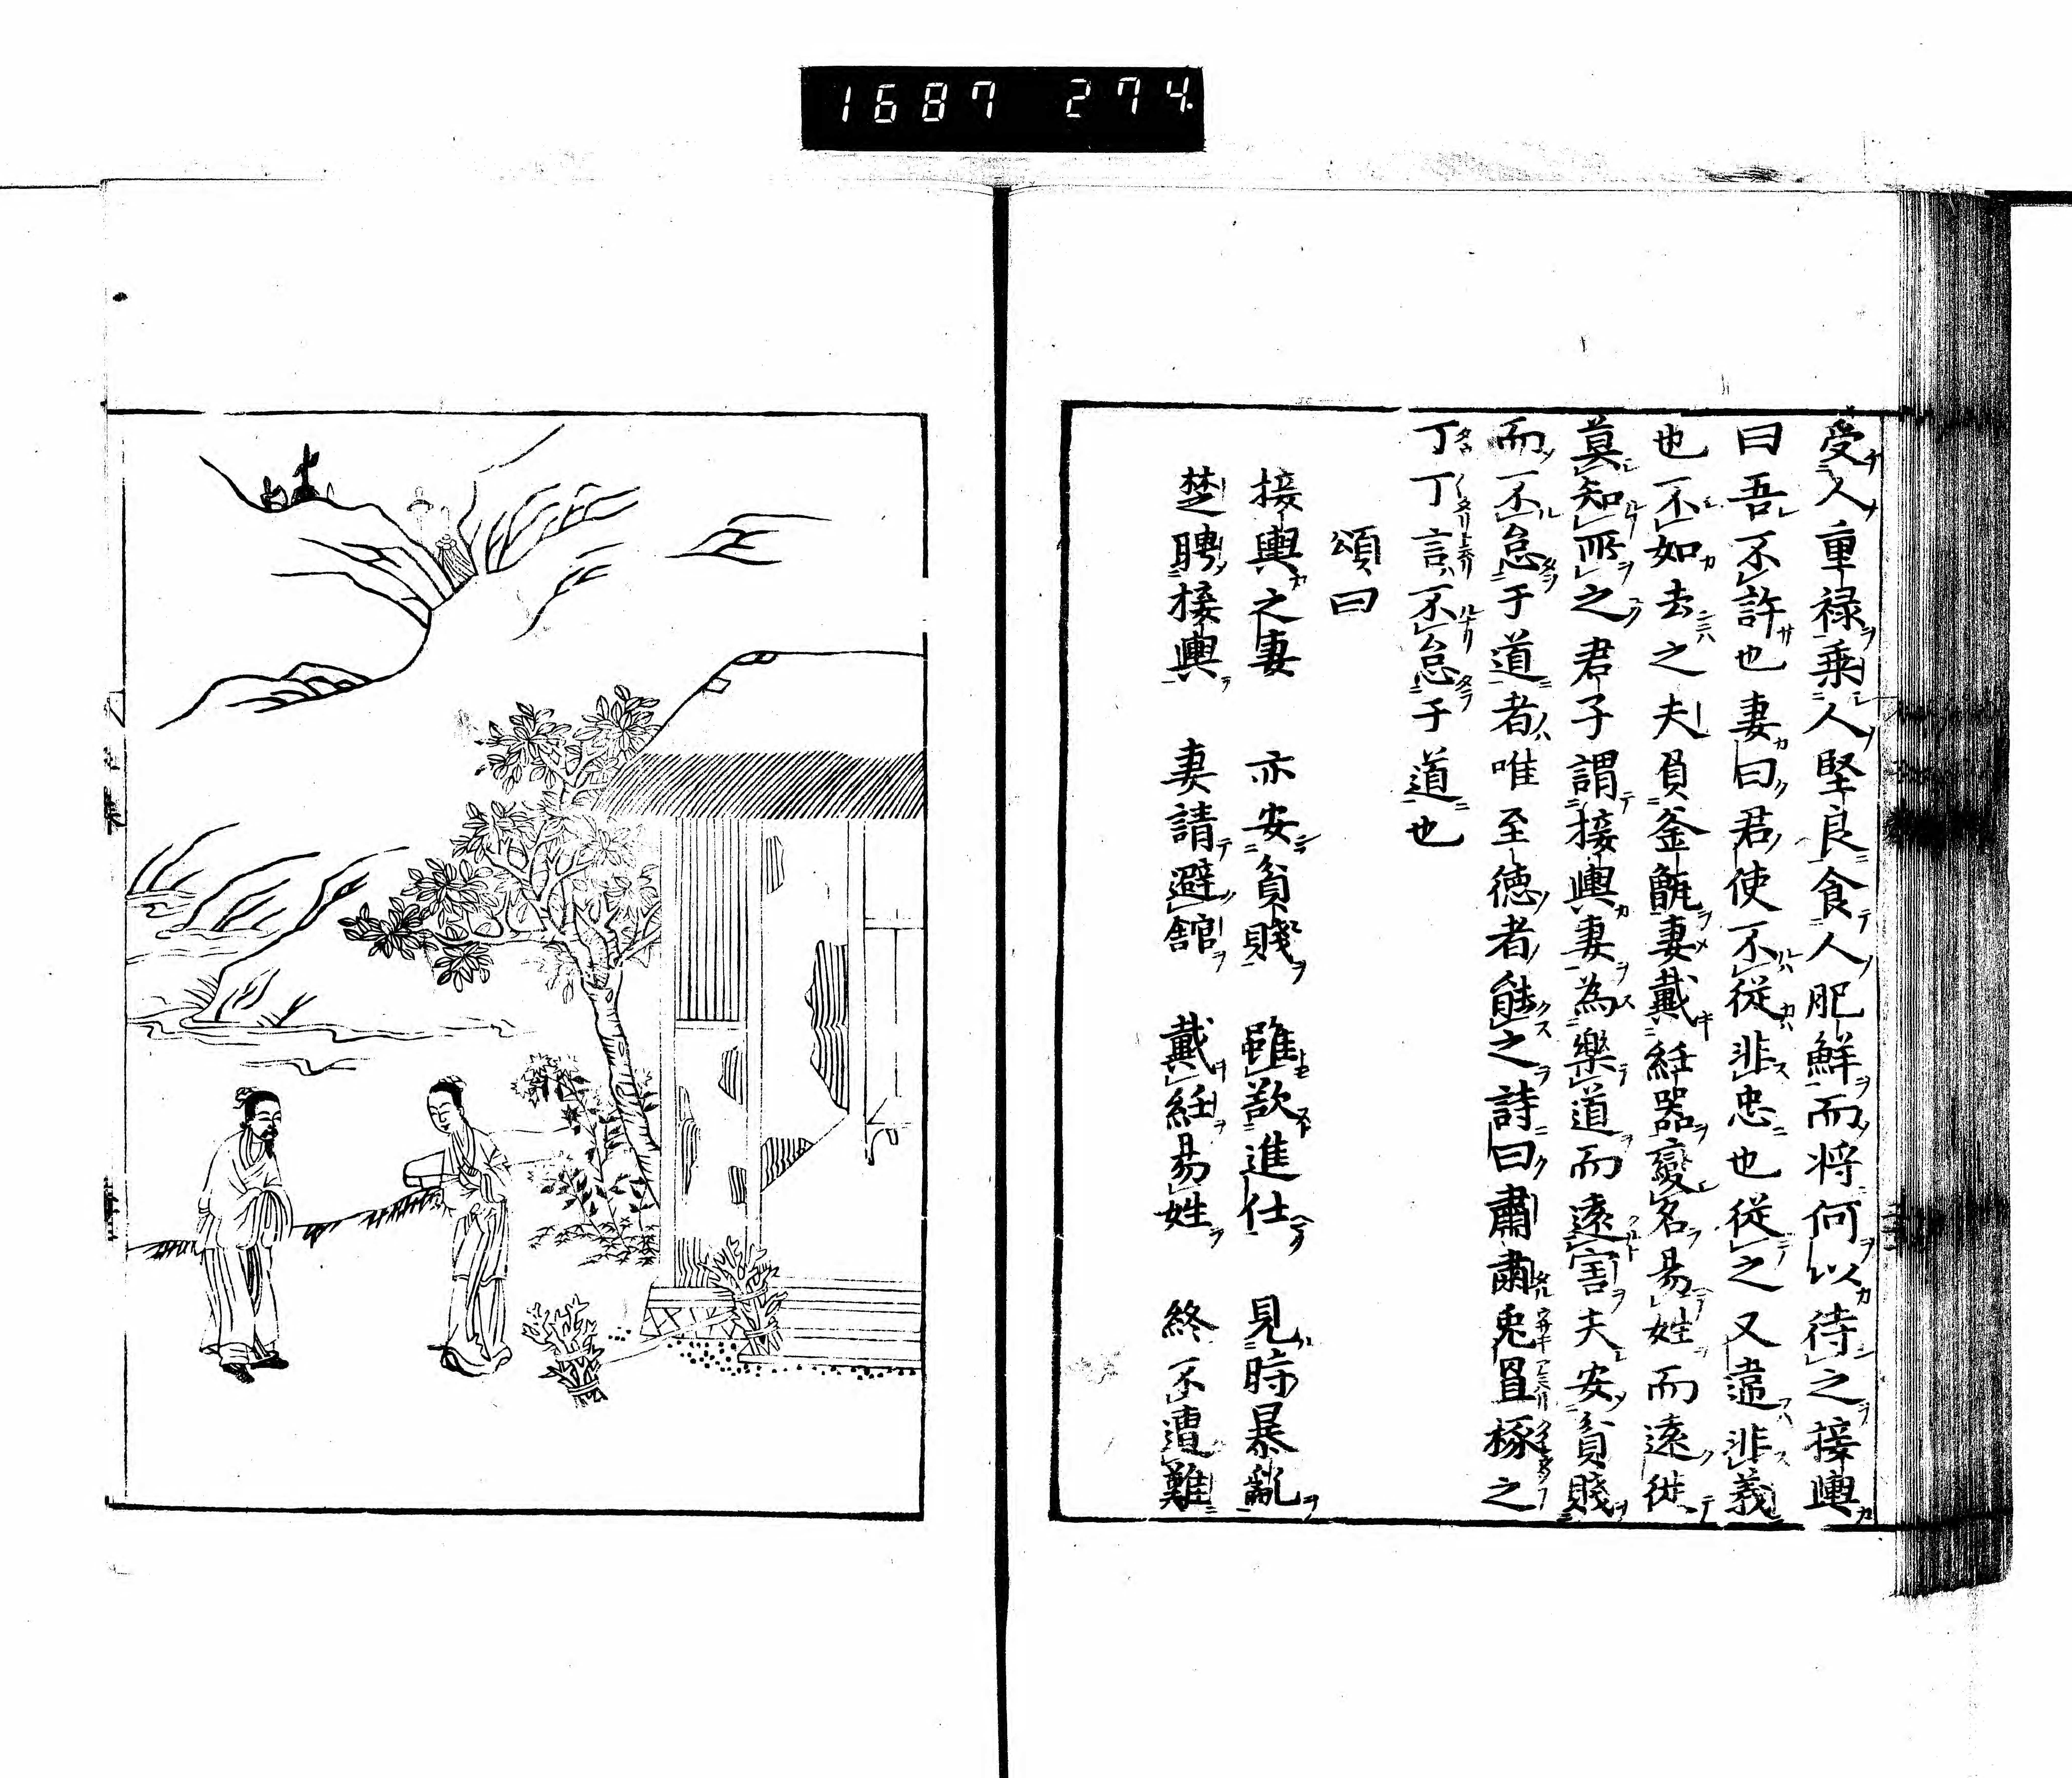 1687 274.
受人重禄乗人堅良食人肥鮮而将何以待之接輿
曰吾不許也妻曰君使不従非忠也従之又違非義
也不如去之夫負釜甑妻戴紝器變名易姓而遠徙
莫知所之君子謂接輿妻為樂道而遠害夫安貧賤
而不怠于道者唯至徳者能之詩曰肅肅兎罝椓之
丁丁言不怠于道也
頌曰
接輿之妻 亦安貧賤 雖欲進仕 見時暴亂
楚聘接輿 妻請避館 戴紝易姓 終不遭難